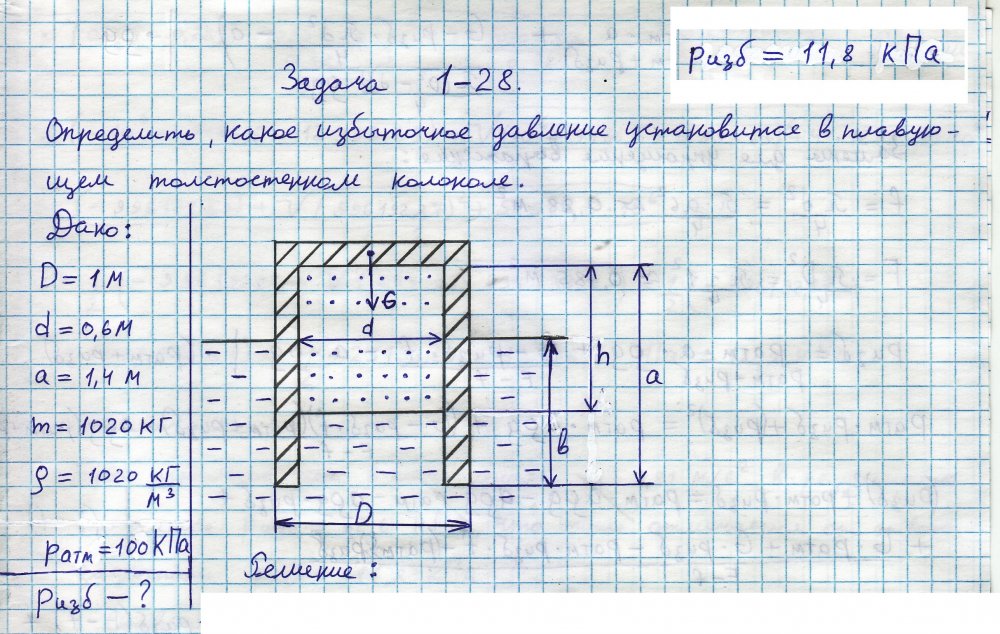 Ризб = 11,8 кПа
Задача 1-28.
Определить, какое избыточное давление установится в плавую-
щем толстостенном колоколе.
Дано:
D = 1 м
d = 0,6 м
a = 1,4 м
m = 1020 кг
ρ = 1020 кг/м³
Ратм = 100 кПа
Ризб - ?
G
d
h
a
в
D
Решение: